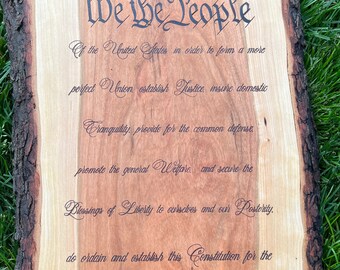 We the People
Of the United States in order to form a more
perfect Union, establish Justice, insure domestic
Tranquility, provide for the common defense,
promote the general Welfare, and secure the
Blessings of Liberty to ourselves and our Posterity,
do ordain and establish this Constitution for the